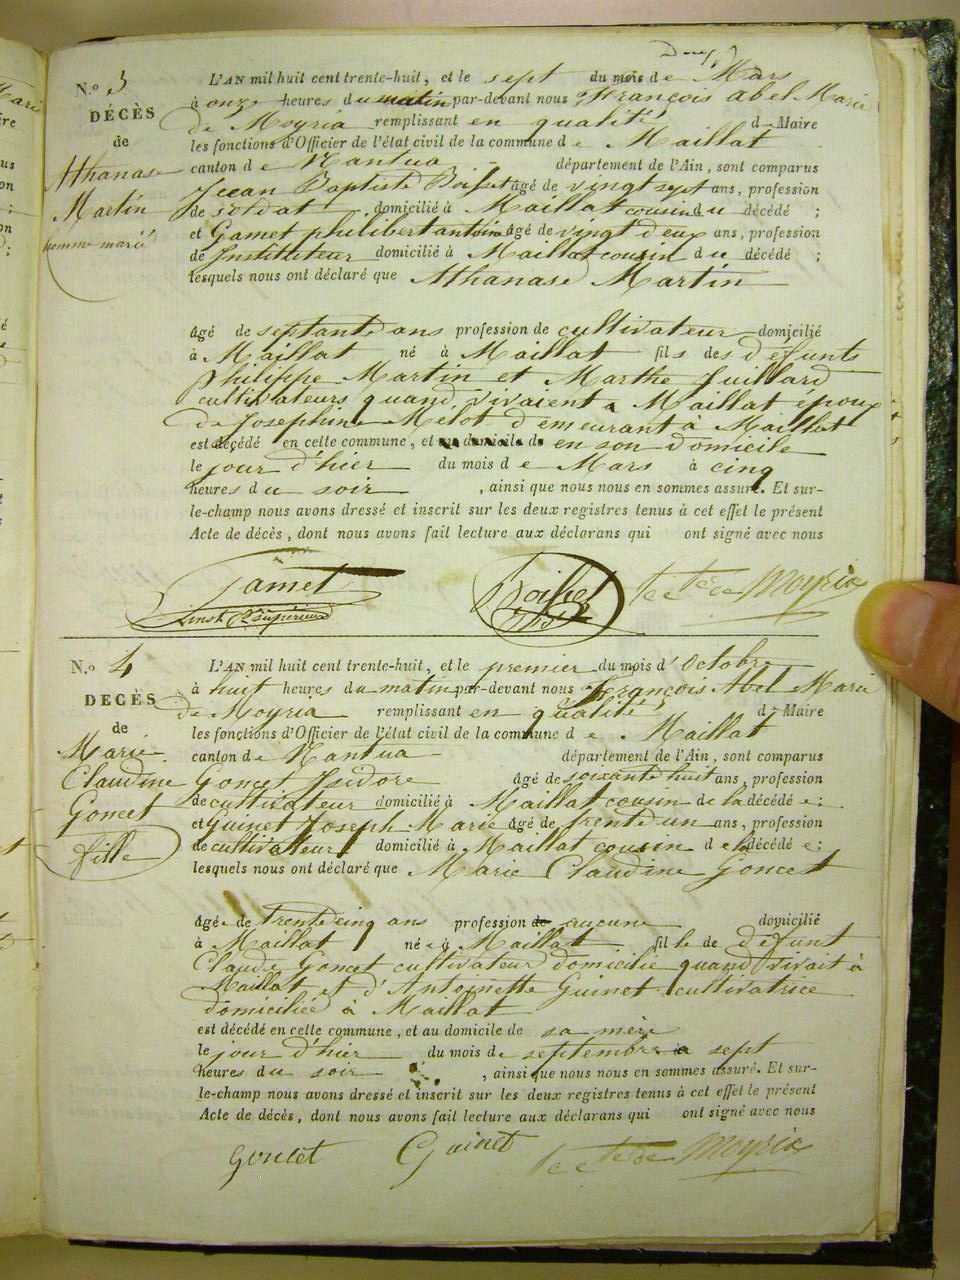 N.o 3
DÉCÈS
de
Athanase
Martin
homme marié
L'AN mil huit cent trente-huit, et le sept du mois de Mars
à onze heures du matin par-devant nous François Abel Marie
de Moyria remplissant en qualité d Maire
les fonctions d'Officier de l'état civil de la commune de Maillat
canton de Nantua département de l'Ain, sont comparus
Jean Baptiste âgé de vingt sept ans, profession
de soldat domicilié à Maillat cousin du décédé ;
et Gamet philibert antoine âgé de vingt deux ans, profession
de Instituteur domicilié à Maillat cousin du décédé ;
lesquels nous ont déclaré que Athanase Martin
âgé de septante ans profession de cultivateur domicilié
à Maillat né à Maillat fils des défunts
Philippe Martin et Marthe Juillard
cultivateurs quand vivaient a Maillat époux
de Josephine Mélot demeurant à Maillat
est décédé en cette commune, et au domicile de en son domicile
le jour d'hier du mois de Mars à cinq
heures du soir , ainsi que nous nous en sommes assuré. Et sur-
le-champ nous avons dressé et inscrit sur les deux registres tenus à cet effet le présent
Acte de décès, dont nous avons fait lecture aux déclarans qui ont signé avec nous
Gamet
de Moyria
N.o 4
DÉCÈS
de
Marie
Claudine
Goncet
fille
L'AN mil huit cent trente-huit, et le premier du mois d'Octobre
à huit heures du matin par-devant nous François Abel Marie
de Moyria remplissant en qualité d Maire
les fonctions d'Officier de l'état civil de la commune de Maillat
canton de Nantua département de l'Ain, sont comparus
Goncet Isidore âgé de soixante huit ans, profession
de cultivateur domicilié à Maillat cousin de la décédée ;
et Guinet Joseph Marie âgé de trente un ans, profession
de cultivateur domicilié à Maillat cousin de la décédée ;
lesquels nous ont déclaré que Marie Claudine Goncet
âgée de trente cinq ans profession de aucune domicilié
à Maillat née à Maillat fille de défunt
Claude Goncet cultivateur domicilié quand vivait à
Maillat et d'Antoinette Guinet cultivatrice
domiciliée à Maillat
est décédé en cette commune, et au domicile de sa mère
le jour d'hier du mois de septembre a sept
heures du soir , ainsi que nous nous en sommes assuré. Et sur-
le-champ nous avons dressé et inscrit sur les deux registres tenus à cet effet le présent
Acte de décès, dont nous avons fait lecture aux déclarans qui ont signé avec nous
Goncet Guinet de Moyria